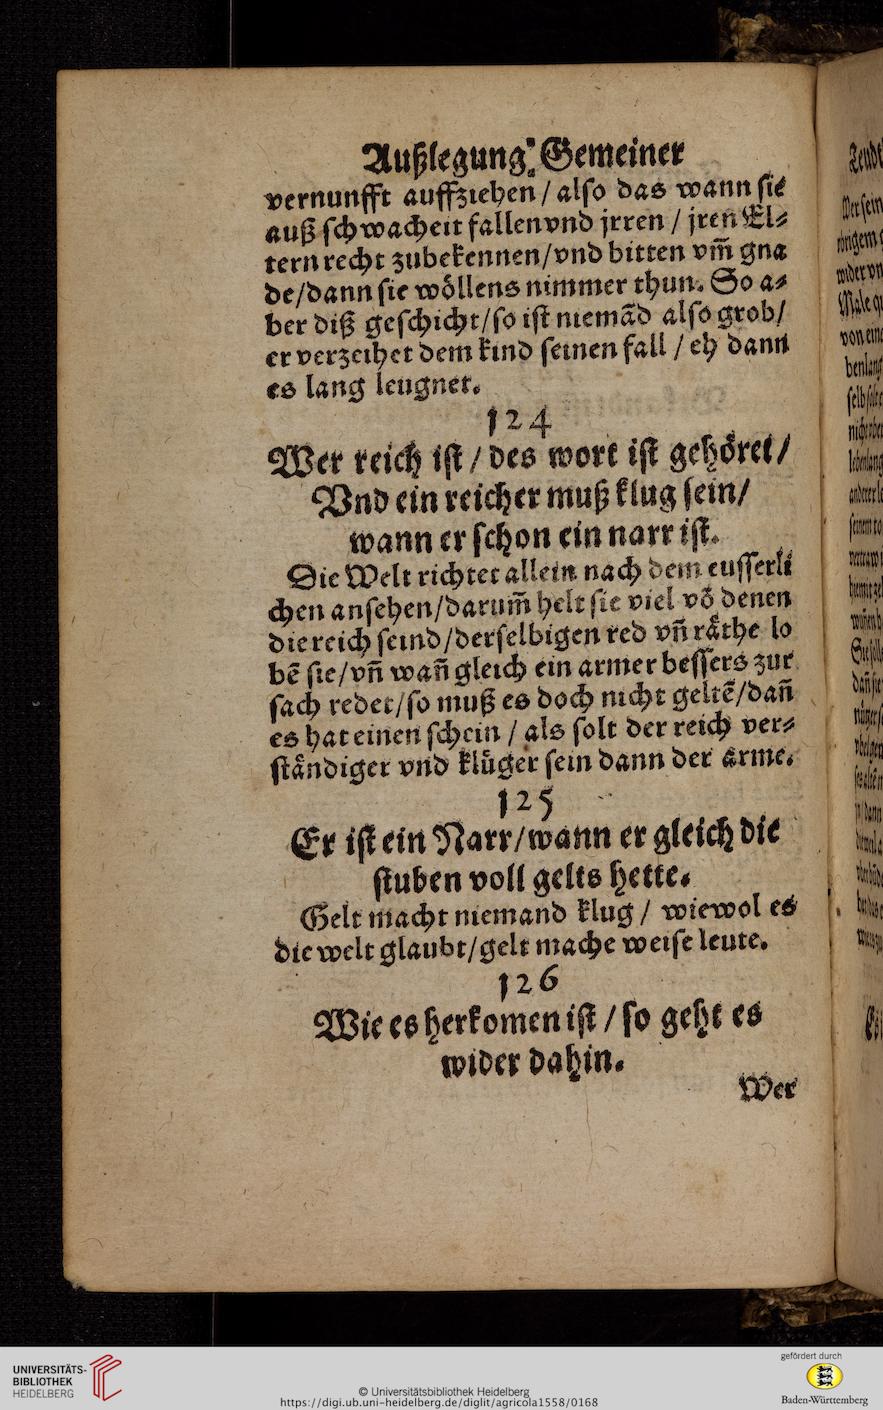 Außlegung Gemeiner
vernunfft auffziehen / also das wann sie
auß schwacheit fallen vnd jrren / jren El⸗
tern recht zubekennen/vnd bitten vm̃ gna
de/dann sie wöllens nimmer thun. So a⸗
ber diß geschicht/so ist niemãd also grob/
er verzeihet dem kind seinen fall / eh dann
es lang leugnet.
124
Wer reich ist / des wort ist gehöret/
Vnd ein reicher muß klug sein/
wann er schon ein narr ist.
Die Welt richtet allein nach dem eusserli
chen ansehen/darum̃ helt sie viel võ denen
die reich seind/derselbigen red vñ räthe lo
bẽ sie/vñ wañ gleich ein armer bessers zur
sach redet/so muß es doch nicht geltẽ/dañ
es hat einen schein / als solt der reich ver⸗
ständiger vnd klüger sein dann der arme.
125
Er ist ein Narr/wann er gleich die
stuben voll gelts hette.
Gelt macht niemand klug / wiewol es
die welt glaubt/gelt mache weise leute.
126
Wie es herkomen ist / so geht es
wider dahin.
Wer
UNIVERSITÄTS-
BIBLIOTHEK
HEIDELBERG
© Universitätsbibliothek Heidelberg
https://digi.ub.uni-heidelberg.de/diglit/agricola1558/0168
gefördert durch
Baden-Württemberg